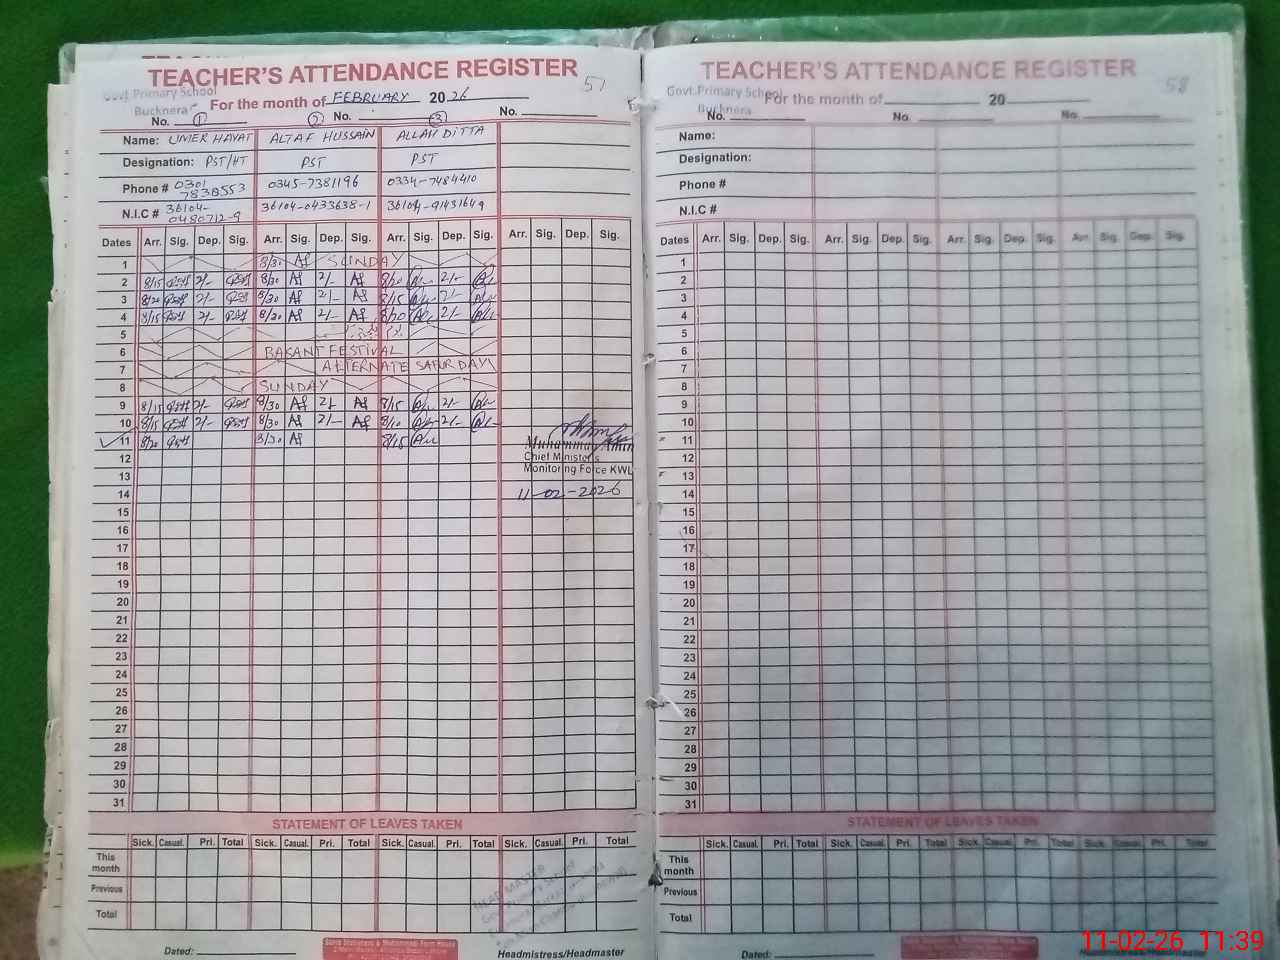 TEACHER'S ATTENDANCE REGISTER 57
Govt.Primary School
Bucknera
For the month of FEBRUARY 2026
No. 1 2 No. 3 No.
Name: UMER HAYAT ALTAF HUSSAIN ALLAH DITTA
Designation: PST/HT PST PST
Phone # 0301 7838553 0345-7381196 0334-7484410
N.I.C # 36104-0480712-9 36104-0433638-1 36104-91431649
Dates Arr. Sig. Dep. Sig. Arr. Sig. Dep. Sig. Arr. Sig. Dep. Sig. Arr. Sig. Dep. Sig.
1 8/30 Af SUNDAY
2 8/15 2/- 8/30 Af 2/- Af 8/20 2/-
3 8/20 2/- 8/30 Af 2/- Af 8/15 2/-
4 8/15 2/- 8/30 Af 2/- Af 8/20 2/-
5
6 BASANT FESTIVAL
7 ALTERNATE SATURDAY
8 SUNDAY
9 8/15 2/- 8/30 Af 2/- Af 8/15 2/-
10 8/15 2/- 8/30 Af 2/- Af 8/10 2/-
11 8/20 8/30 Af 8/15
Muhammad Amin
12 Chief Minister's
13 Monitoring Force KWL
14 11-02-2026
15
16
17
18
19
20
21
22
23
24
25
26
27
28
29
30
31
STATEMENT OF LEAVES TAKEN
Sick. Casual. Pri. Total Sick. Casual. Pri. Total Sick. Casual. Pri. Total Sick. Casual. Pri. Total
This month
Previous
Total
HEAD MASTER
Govt. Primary School
Dated:
Headmistress/Headmaster
TEACHER'S ATTENDANCE REGISTER 58
Govt.Primary School
Bucknera
For the month of 20
No. No. No.
Name:
Designation:
Phone #
N.I.C #
Dates Arr. Sig. Dep. Sig. Arr. Sig. Dep. Sig. Arr. Sig. Dep. Sig. Arr. Sig. Dep. Sig.
1
2
3
4
5
6
7
8
9
10
11
12
13
14
15
16
17
18
19
20
21
22
23
24
25
26
27
28
29
30
31
STATEMENT OF LEAVES TAKEN
Sick. Casual. Pri. Total Sick. Casual. Pri. Total Sick. Casual. Pri. Total Sick. Casual. Pri. Total
This month
Previous
Total
Dated:
Headmistress/Headmaster
11-02-26 11:39